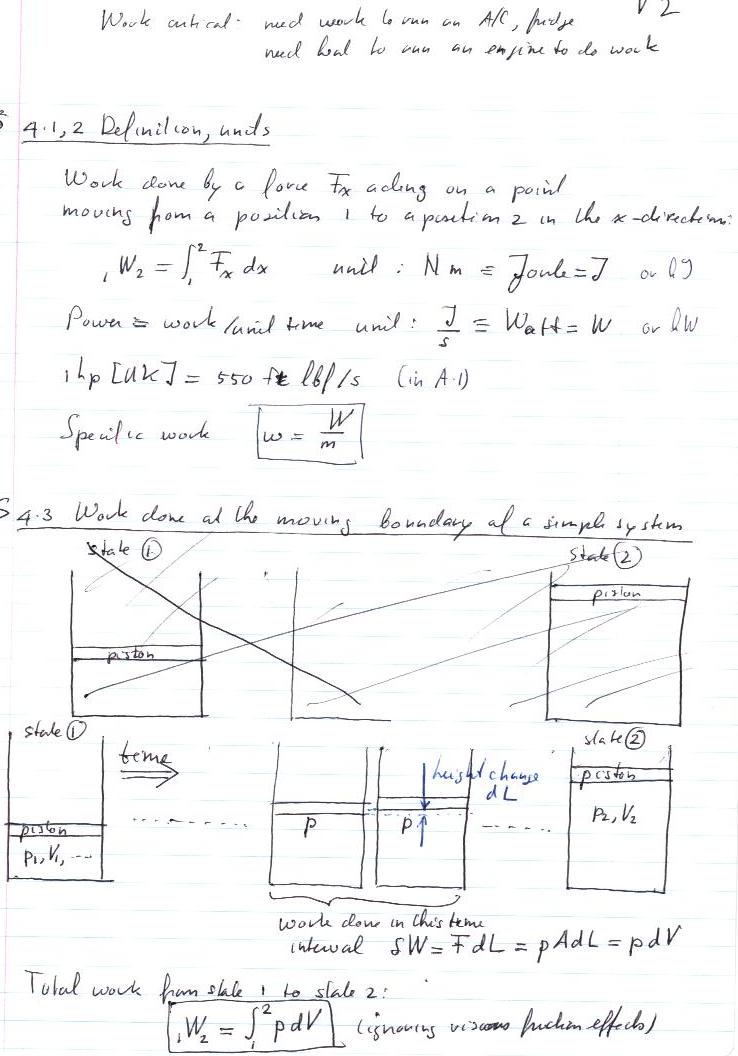 V 2
Work critical: need work to run an A/C, fridge
need heat to run an engine to do work
4.1,2 Definition, units
Work done by a force Fx acting on a point
moving from a position 1 to a position 2 in the x-direction:
₁W₂ = ∫₁² Fx dx unit : N m ≡ Joule = J or kJ
Power = work/unit time unit : J/s ≡ Watt = W or kW
1 hp [UK] = 550 ft lbf/s (in A.1)
Specific work w = W/m
4.3 Work done at the moving boundary of a simple system
state ① state ②
piston
piston
state ① state ②
time
height change
dL
piston
piston
p p
P₁, V₁, ... P₂, V₂
work done in this time
interval δW = F dL = p A dL = p dV
Total work from state 1 to state 2:
₁W₂ = ∫₁² p dV (ignoring viscous friction effects)